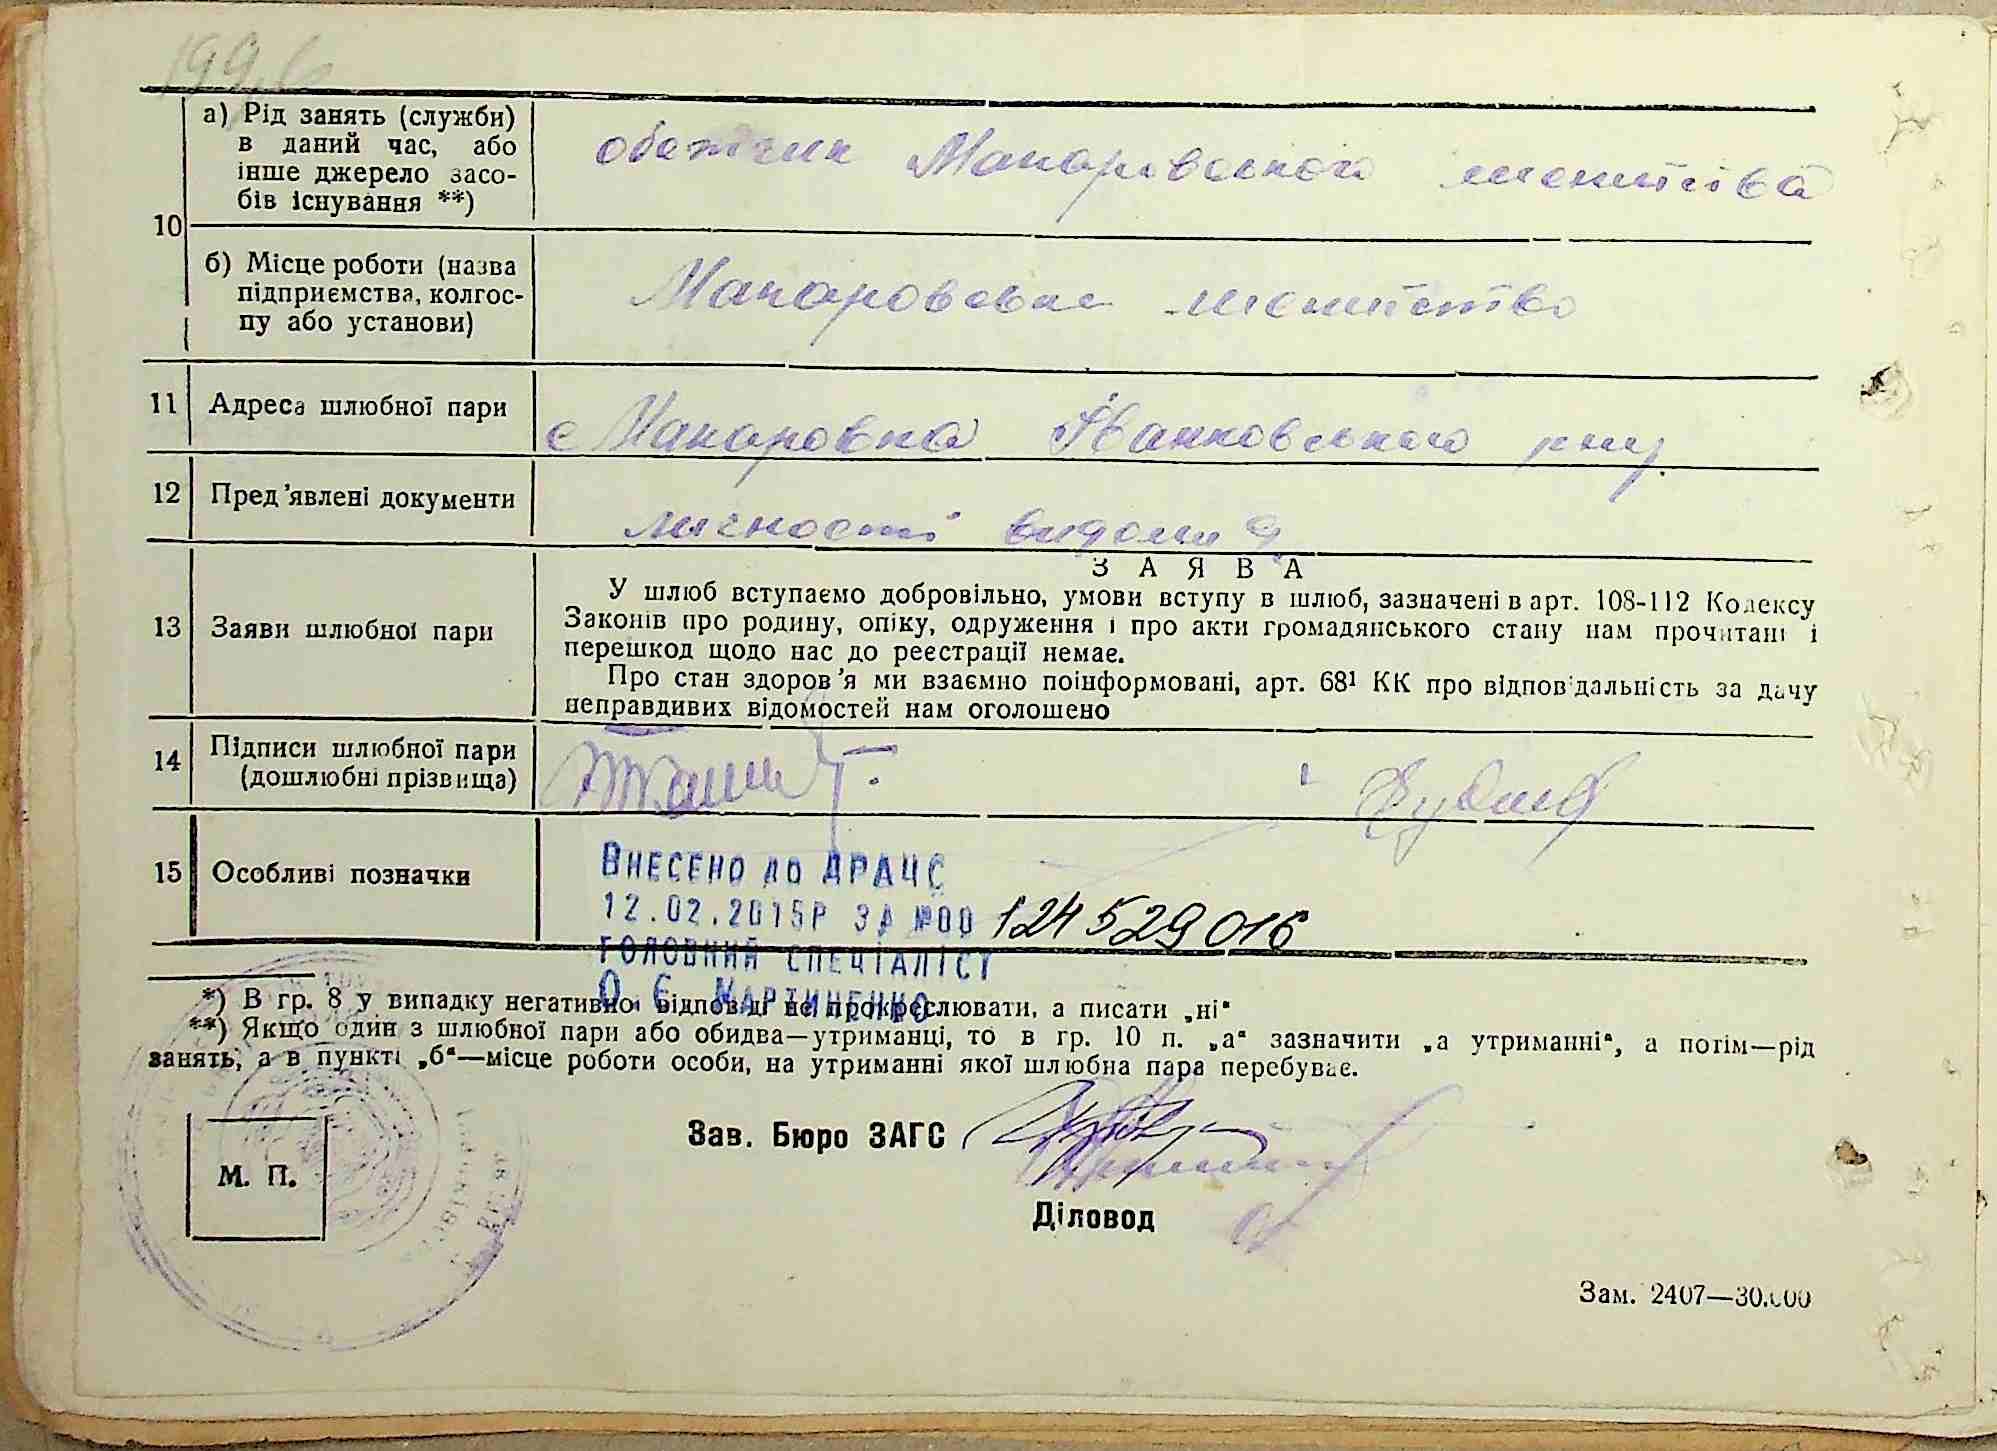 199
10
а) Рід занять (служби)
в даний час, або
інше джерело засо-
бів існування **)
Макаровського лісництва
б) Місце роботи (назва
підприємства, колгос-
пу або установи)
Макаровське лісництво
11 Адреса шлюбної пари
с Макаровка Іванковського р-ну
12 Пред'явлені документи
личності видомі
13 Заяви шлюбної пари
ЗАЯВА
У шлюб вступаємо добровільно, умови вступу в шлюб, зазначені в арт. 108-112 Кодексу
Законів про родину, опіку, одруження і про акти громадянського стану нам прочитані і
перешкод щодо нас до реєстрації немає.
Про стан здоров'я ми взаємно поінформовані, арт. 68¹ КК про відповідальність за дачу
неправдивих відомостей нам оголошено
14 Підписи шлюбної пари
(дошлюбні прізвища)
15 Особливі позначки
ВНЕСЕНО ДО ДРАЦС
12.02.2015Р ЗА №00 124529016
ГОЛОВНИЙ СПЕЦІАЛІСТ
О.Є. МАРТИНЕНКО
*) В гр. 8 у випадку негативної відповіді не прокреслювати, а писати „ні“
**) Якщо один з шлюбної пари або обидва—утриманці, то в гр. 10 п. „а“ зазначити „а утриманні“, а потім—рід
занять, а в пункті „б“—місце роботи особи, на утриманні якої шлюбна пара перебуває.
Зав. Бюро ЗАГС
М. П.
Діловод
Зам. 2407—30.000